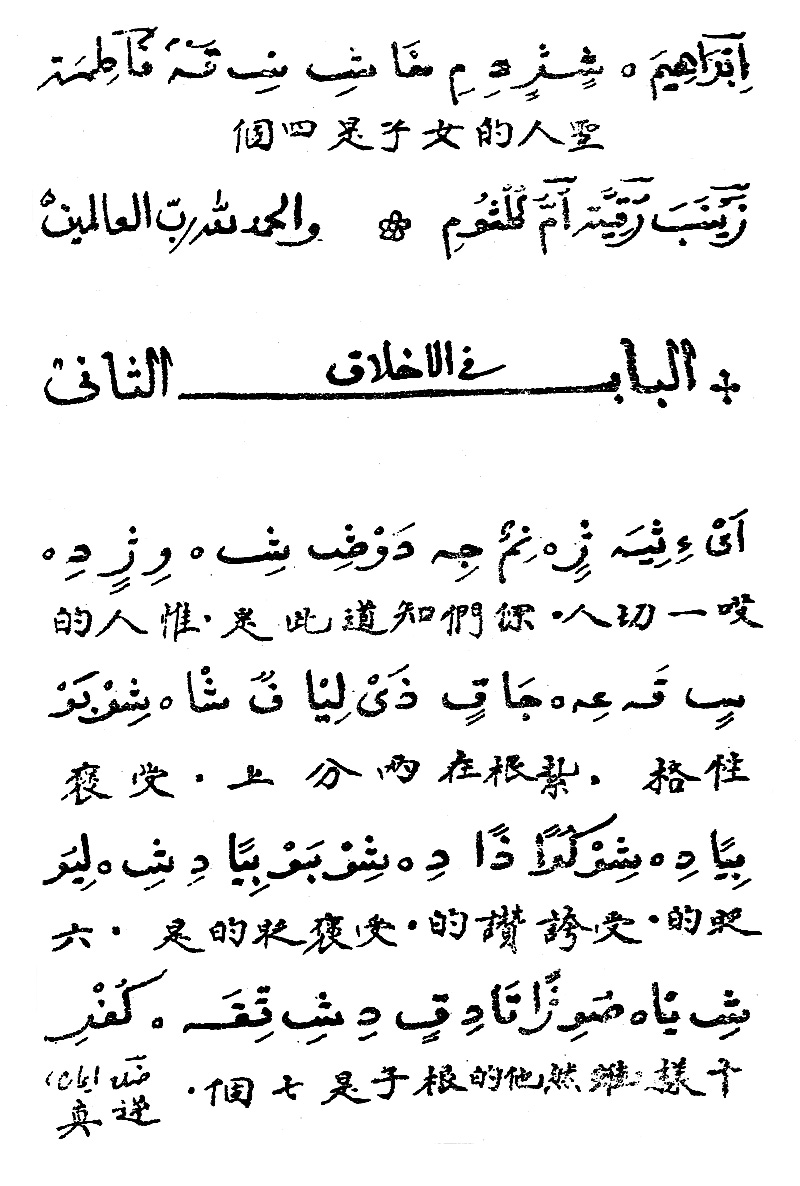 اِبْرَاهِيمَ ٥ شٍ ژٍ دِ مِ مَا شِ سِ قَہْ فَاطِمَةَ
聖人的女子是四個
زَيْنَبَ رُقِيَّةَ اُمِّ كُلْثُومِ والحمد لله رب العالمين
الباب في الاخلاق الثانى
اَىْ ءِ ثِيَہ ژٍ ٥ نِمٌ جِہ دَوْضِ شِہ ٥ وِ ژٍ دِ ٥
哎一切人·你們知道此是·惟人的
سٍ قَہ عِہ ٥ جَا قٍ ذَىْ لِيْا فٌ شَا ٥ شِوْ بَوْ
性格·紮根在兩分上·受褒
بِيًا دِ ٥ شِوْ كُوَا ذًا دِ ٥ شِوْ بَوْ بِيًا دِ شِ ٥ لِيَوْ
貶的·受誇讚的·受褒貶的是·六
شِ يَا ٥ صُوِژًا تَا دِ قٍ دِ شِ تِقَہ ٥ كُفْرِ
十樣雖然他的根子是七個·
ضد ايمان
逆真